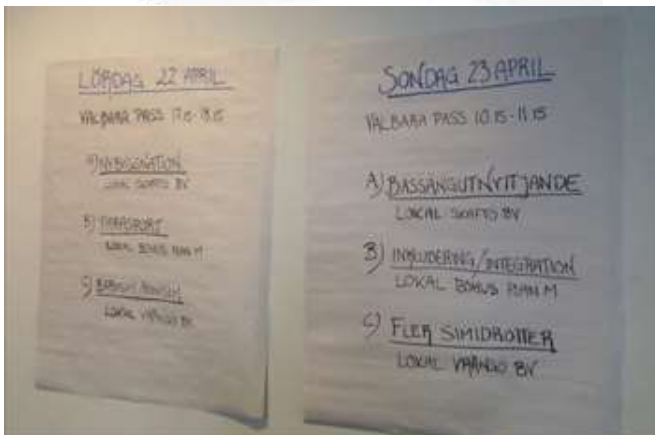 LÖRDAG 22 APRIL
VALBARA PASS 17.15-18.15
A)
LOKAL SKAFTÖ BV
B) PARASPORT
LOKAL BOHUS PLAN M
C)
LOKAL VRÅNGÖ BV
SÖNDAG 23 APRIL
VALBARA PASS 10.15-11.15
A) BASSÄNGUTNYTTJANDE
LOKAL SKAFTÖ BV
B) INKLUDERING/INTEGRATION
LOKAL BOHUS PLAN M
C) FLER SIMIDROTTER
LOKAL VRÅNGÖ BV